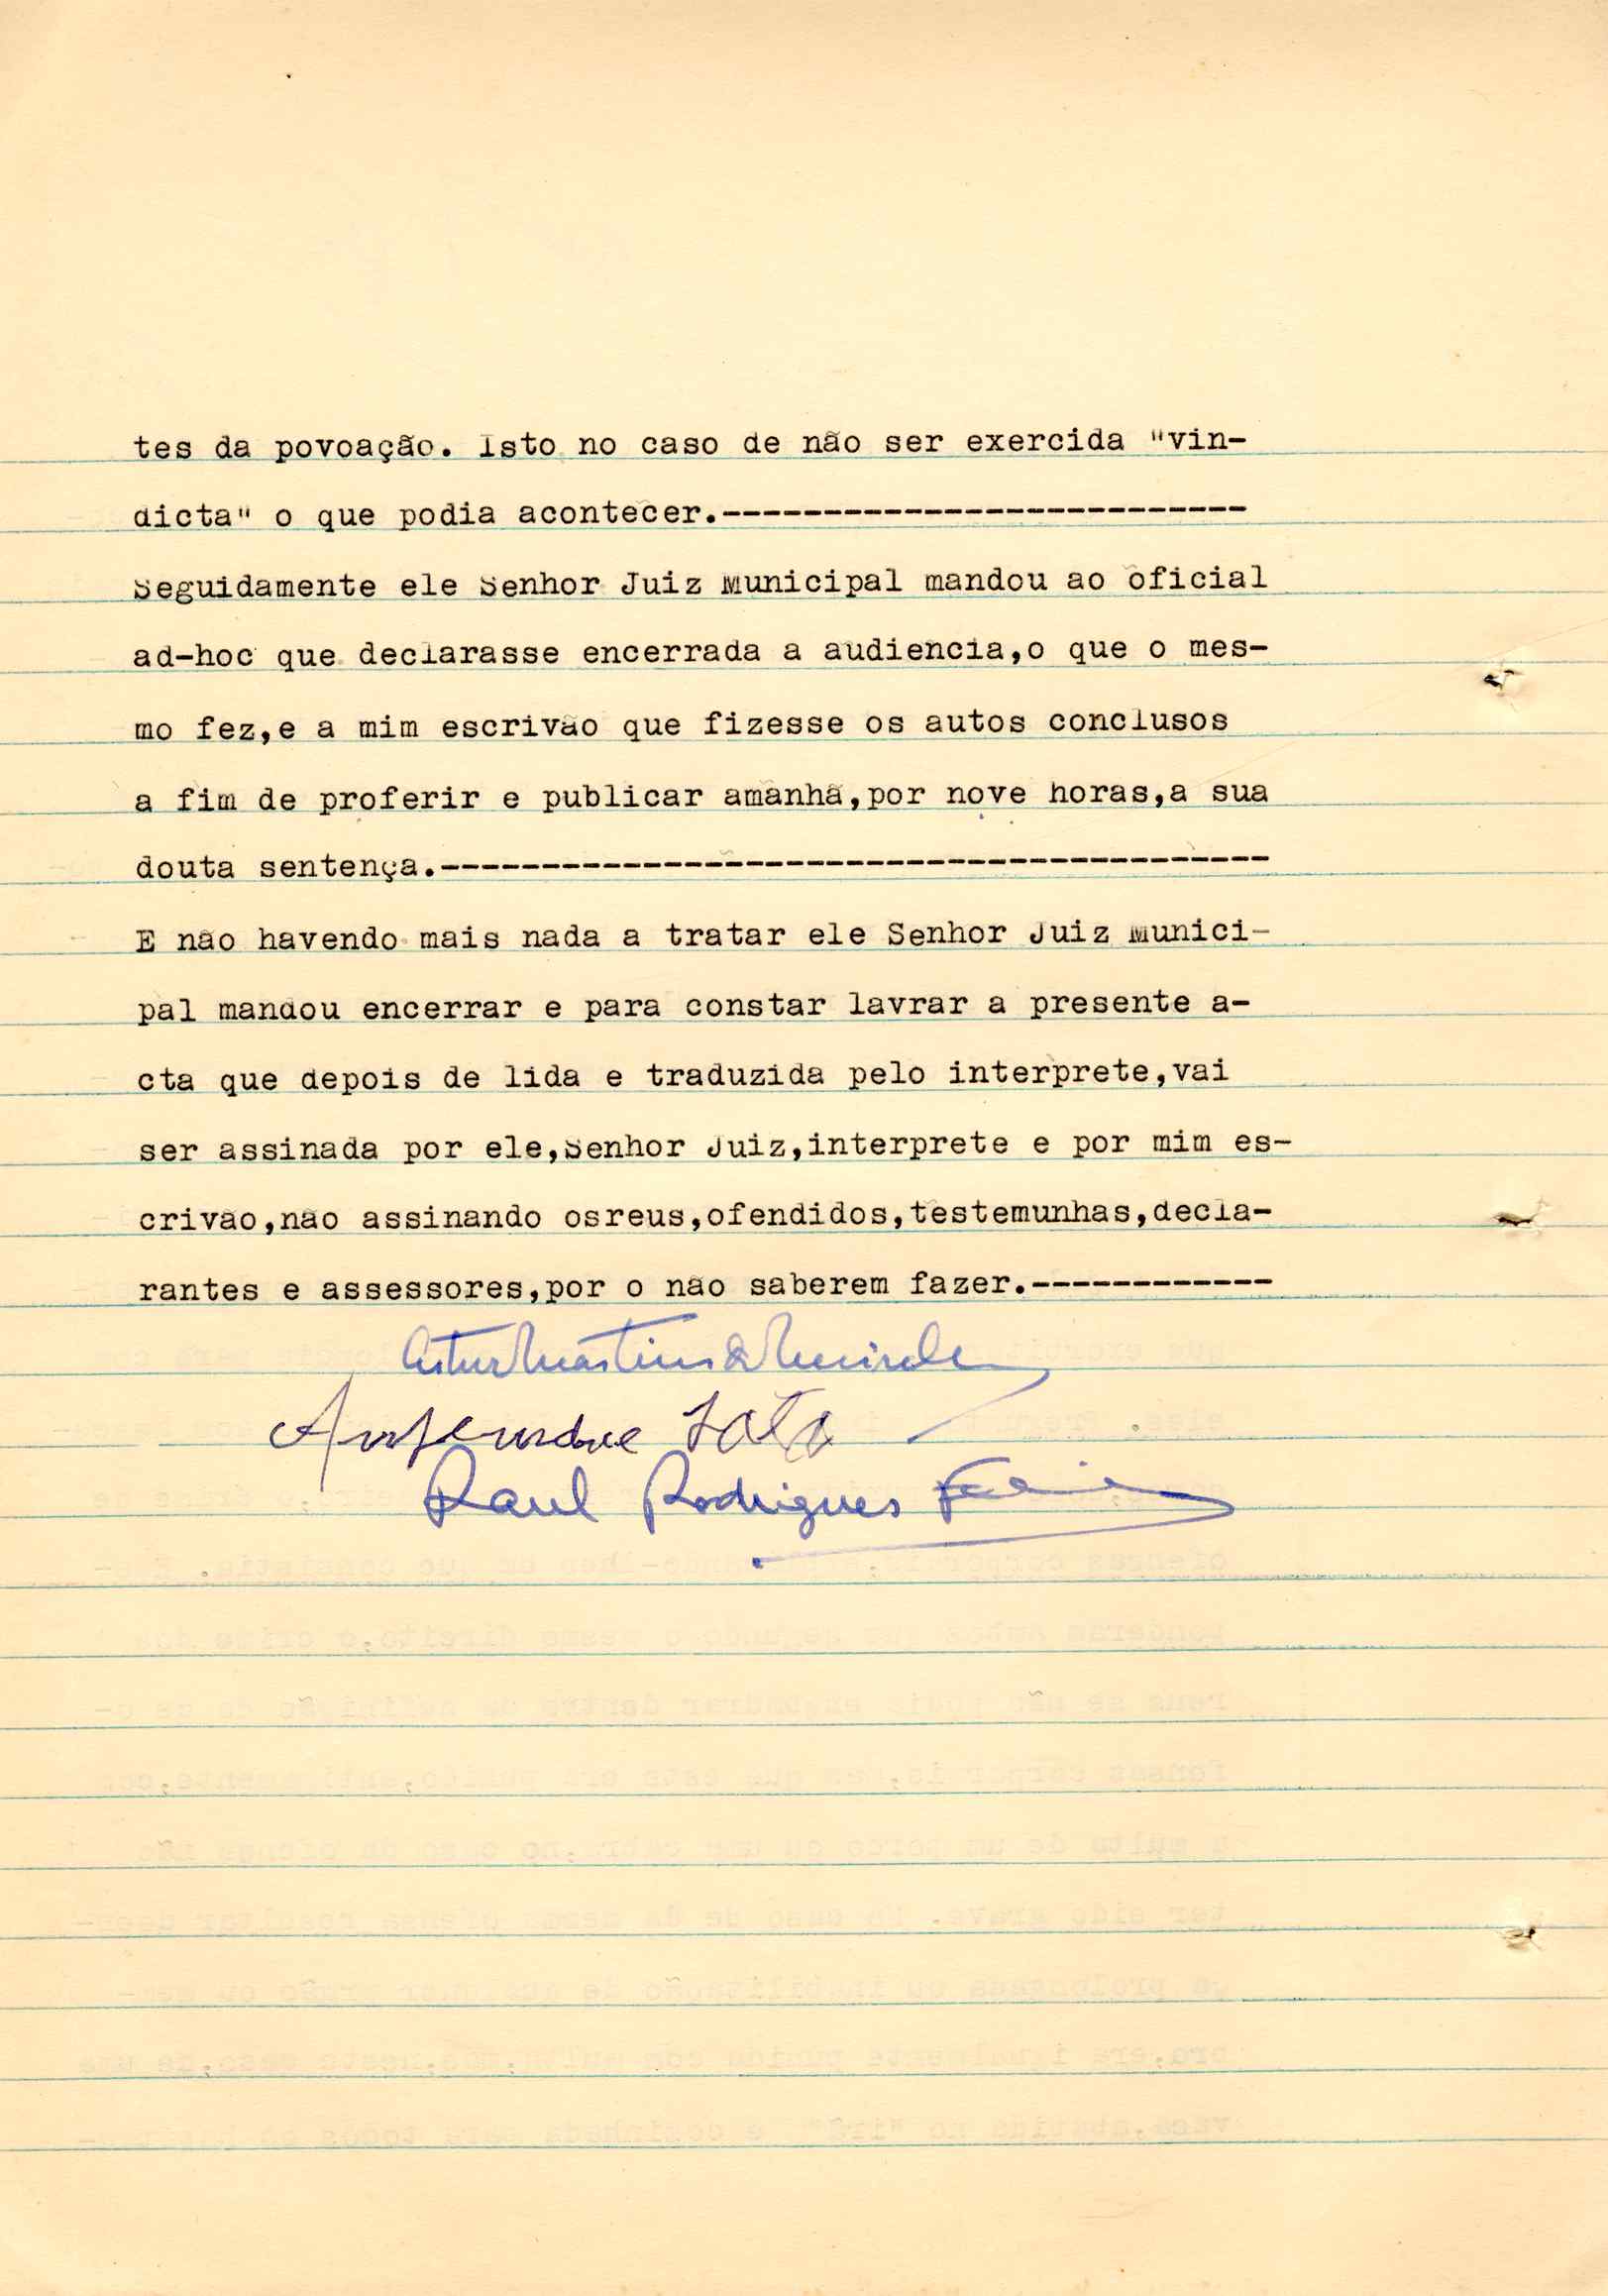 tes da povoação. Isto no caso de não ser exercida "vin-
dicta" o que podia acontecer.--------------------------
Seguidamente ele Senhor Juiz Municipal mandou ao oficial
ad-hoc que declarasse encerrada a audiencia,o que o mes-
mo fez,e a mim escrivão que fizesse os autos conclusos
a fim de proferir e publicar amanhã,por nove horas,a sua
douta sentença.-----------------------------------------
E não havendo mais nada a tratar ele Senhor Juiz Munici-
pal mandou encerrar e para constar lavrar a presente a-
cta que depois de lida e traduzida pelo interprete,vai
ser assinada por ele,Senhor Juiz,interprete e por mim es-
crivão,não assinando osreus,ofendidos,testemunhas,decla-
rantes e assessores,por o não saberem fazer.------------
Raul Rodrigues